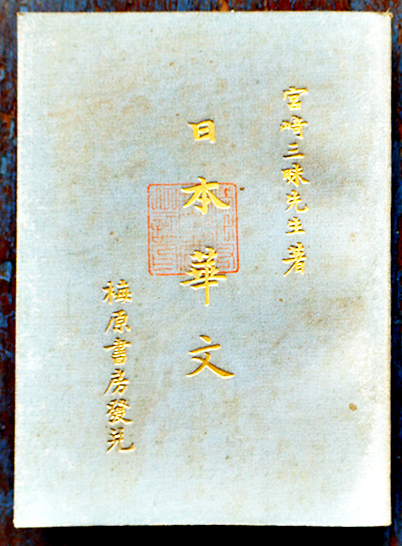 宮崎三昧先生著
日本華文
梅原書房發兌